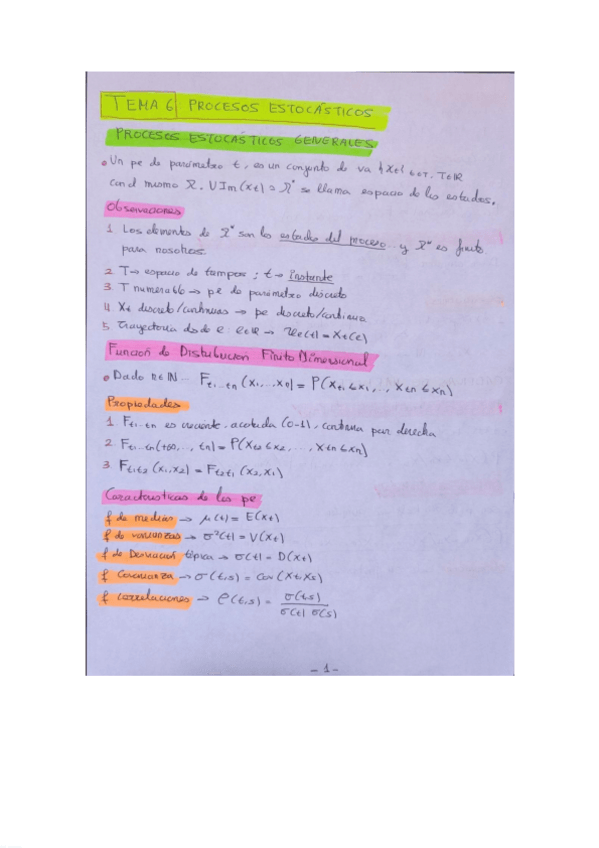 TEMA 6 PROCESOS ESTOCÁSTICOS
PROCESOS ESTOCÁSTICOS GENERALES
• Un pe de parámetro t, es un conjunto de va {Xt} t∈T, T∈ℝ
con el mismo Ω. U Im(Xt) = Ω* se llama espacio de los estados.
Observaciones
1. Los elementos de Ω* son los estados del proceso y Ω* es finito
para nosotros.
2. T → espacio de tiempos ; t → Instante
3. T numerable → pe de parámetro discreto
4. Xt discreto/continuas → pe discreto/continuo
5. Trayectoria dado e: e∈Ω → xe(t) = Xt(e)
Función de Distribución Finito Dimensional
• Dado n∈ℕ... Ft1...tn (x1,...xn) = P(Xt1≤x1,.., Xtn≤xn)
Propiedades
1. Ft1...tn es creciente, acotada (0-1), continua por derecha
2. Ft1...tn(+∞,.., tn) = P(Xt2≤x2,..., Xtn≤xn)
3. Ft1t2 (x1,x2) = Ft2t1 (x2,x1)
Características de los pe
f de medias → μ(t) = E(Xt)
f de varianzas → σ²(t) = V(Xt)
f de Desviación típica → σ(t) = D(Xt)
f Covarianza → σ(t,s) = Cov(Xt,Xs)
f correlaciones → ρ(t,s) = σ(t,s) / σ(t) σ(s)
- 1 -